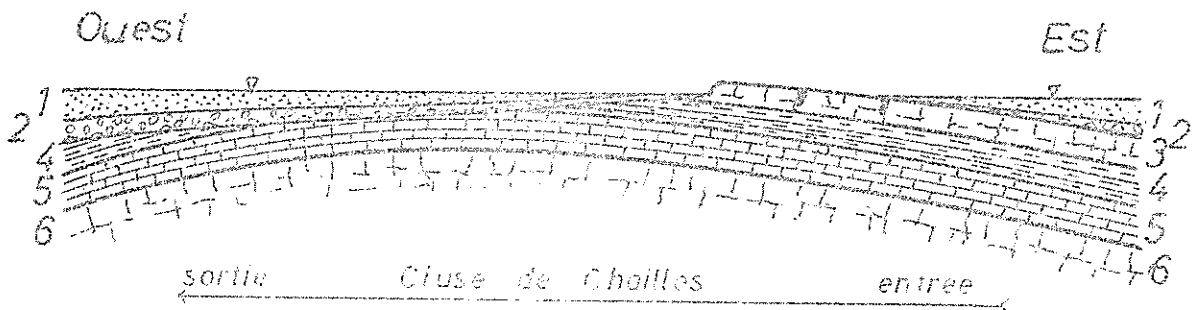 Ouest
Est
1
2
4
5
6
1
2
3
4
5
6
sortie Cluse de Chailles entrée